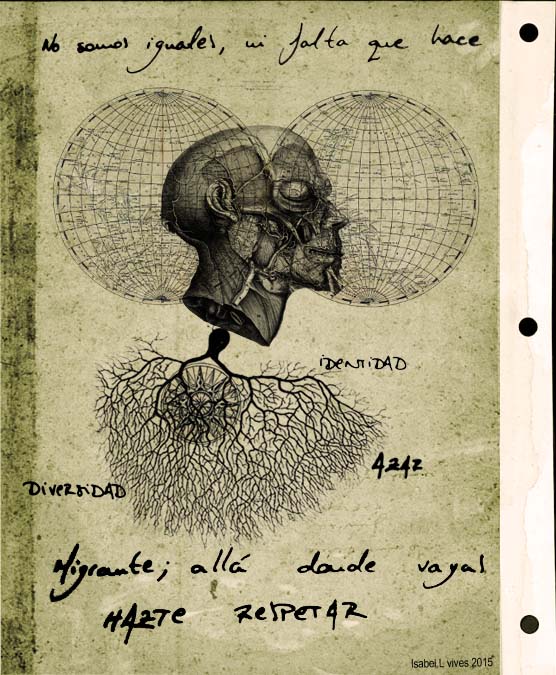 No somos iguales, ni falta que hace
identidad
AZAZ
DiversiDAD
Migrante; allá donde vayas
HAZTE RESPETAR
Isabel.L vives 2015